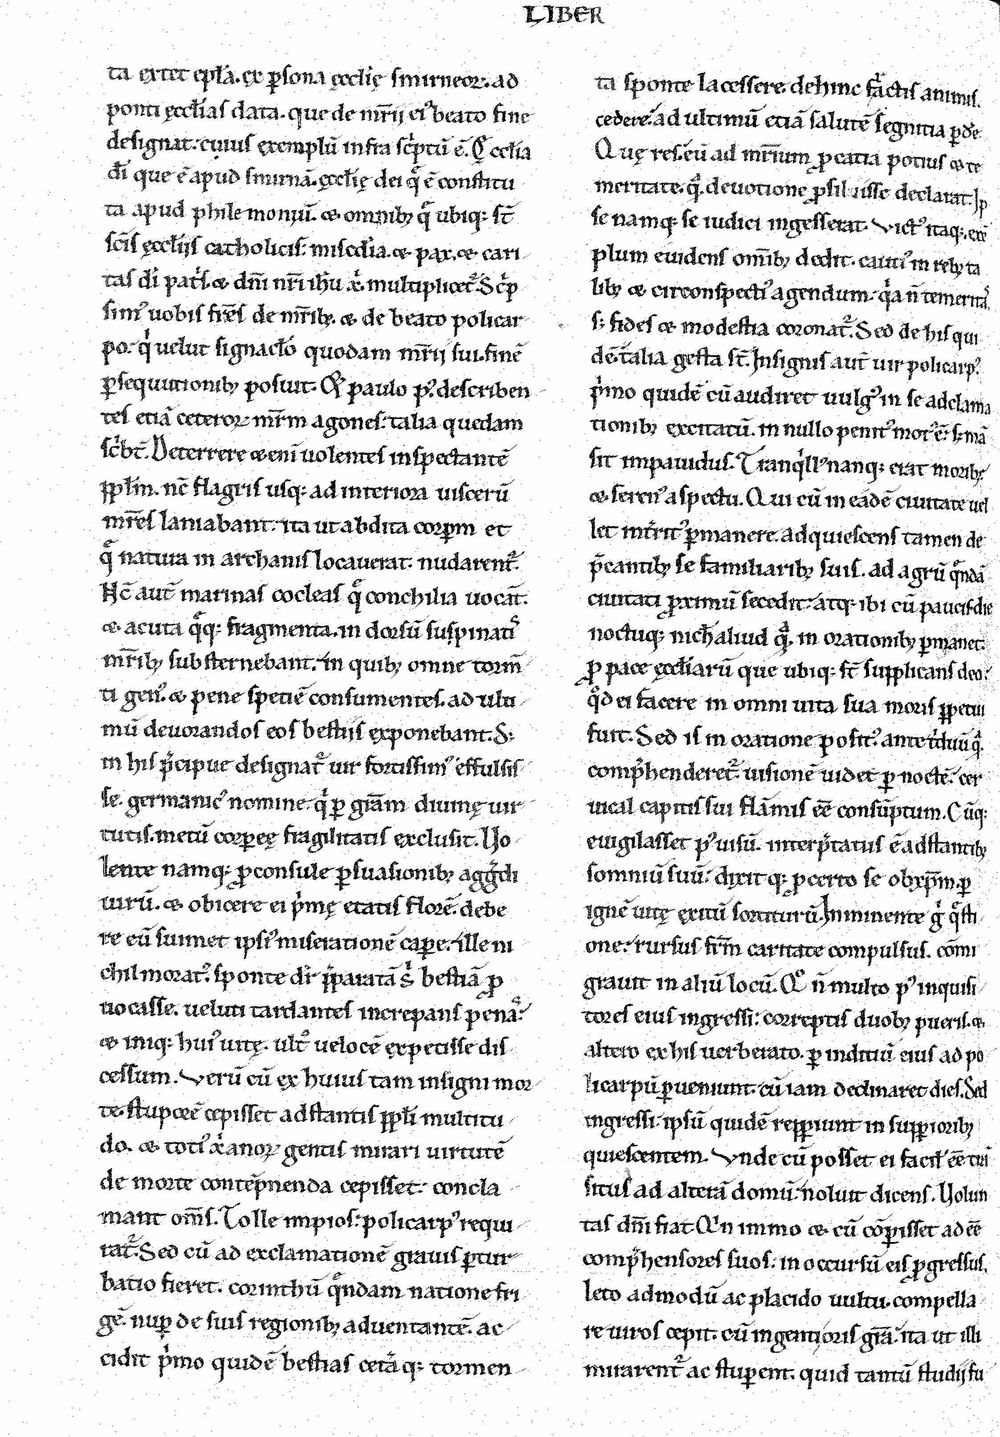 LIBER
ta extet epl̄a. ex ꝑsona ęcclīę smirneoꝝ. ad
ponti ęcclīas data. que de mr̄ij ei᷒ beato fine
designat. cuius exemplū infra sc̄ptū ē. Ęcclīa
dī que ē apud smirnā. ęcclīę dei q̄ ē constitu
ta apud philemoniū. & omnibꝫ q̄ ubiqꝫ st̄
sc̄is ęcclīis catholicis. misc̄dia. & pax. & cari
tas dī patr̄s. & dn̄i nr̄i ih̄u xp̄i multiplicet᷑. Sc̄p
sim᷒ uobis fr̄es de mr̄ibꝫ. & de beato policar
po. q̇ uelut signacl̄o quodam mr̄ij sui. finē
ꝑsequutionibꝫ posuit. Et paulo p᷒. describen
tes etiā ceteroꝝ mr̄m agones. talia quedam
sc̄bt̄. Deterrere & enī uolentes inspectantē
ppl̄m. nc̄ flagris usqꝫ ad interiora uiscerū
mr̄es laniabant. ita ut abdita corꝑm et
q̄ natiua in archanis locauerat. nudarent᷑.
Nc̄ aut̄ marinas cocleas q̄ conchilia uocant̄.
& acuta q̄qꝫ fragmenta. in dorsū suspinati᷒
mr̄ibꝫ substernebant. in quibꝫ omne torm̄
ti gen᷒. & pene speciē consumentes. ad ulti
mū deuorandos eos bestijs exponebant. Sꝫ
in his p̄cipue designat᷑ uir fortissim᷒ effulsis
se. germanic᷒ nomine. q̇ ꝑ gr̄am diuinę uir
tutis. metū corꝑeę fragilitatis exclusit. Uo
lente namqꝫ ꝓconsule ꝑsuasionibꝫ aggr̄di
uirū. & obicere ei ṗmę etatis florē. debe
re eū suimet ipsi᷒ miserationē caꝑe. ille ni
chil morat᷒. sponte dr̄ p̄paratā s̄ bestiā ꝓ
uocasse. ueluti tardantes increpans penā.
& iniqꝫ hui᷒ uitę. ult᷒ uelocē expetisse dis
cessum. Verū cū ex huius tam insigni mor
te. stuporē cepisset adstantis ppl̄i multitu
do. & toti᷒ xp̄ianoꝝ gentis mirari uirtutē
de morte contēpnenda cepisset. concla
mant om̄s. Tolle impios. policarp᷒ requi
rat᷑. Sed cū ad exclamationē grauis ꝑtur
batio fieret. corinthū q̄ndam natione fri
gē. nuꝑ de suis regionibꝫ aduentantē. ac
cidit ṗmo quidē bestias cetāqꝫ tormen
ta sponte lacessere. dehinc fr̄actis animis.
cedere. ad ultimū etiā salutē segnitia ꝑde.
Quę res. cū ad mr̄ium ꝓcatia potius & te
meritate. q̄. deuotione ꝓsiluisse declarat. Ip
se namqꝫ se iudici ingesserat. Vict᷒ itaqꝫ exē
plum euidens om̄ibꝫ dedit. cauti᷒ in rebꝫ ta
libꝫ & circonspecti᷒ agendum. q̄a n̄ temeritas
sꝫ fides & modestia coronat᷑. Sed de his qui
dē talia gesta st̄. Insignis aut̄ uir policarp᷒.
ṗmo quidē cū audiret uulg᷒ in se adclama
tionibꝫ excitatū. in nullo penit᷒ mot᷒ ē. sꝫ mā
sit impauidus. Tranq̇ll᷒ nanqꝫ erat moribꝫ
& seren᷒ aspectu. Qui cū in eadē ciuitate uel
let intrit᷒ ꝑmanere. adquiescens tamen de
p̄cantibꝫ se familiaribꝫ suis. ad agrū q̄ndā
ciuitati ꝓximū secedit. atqꝫ ibi cū paucis die
noctuqꝫ nich̄ aliud q̄. in orationibꝫ ꝑmanet.
ꝓ pace ęcclīarū que ubiqꝫ st̄ supplicans deo.
q̄d ei facere in omni uita sua moris ppetui
fuit. Sed is in oratione posit᷒. ante ṫduū q̄.
comp̄henderet᷑. uisionē uidet ꝑ noctē. cer
uical capitis sui flāmis eē consūptum. Cūqꝫ
euigilasset p᷒ uisū. interp̄tatus ē adstantibꝫ
somniū suū. dixitqꝫ ꝓ certo se ob xp̄m. ꝑ
ignē uitę exitū sortiturū. Inminente g̊ q̄sti
one. rursus fr̄m caritate compulsus. cōmi
grauit in aliū locū. Quo n̄ multo p᷒ inquisi
tores eius ingressi. correptis duobꝫ pueris. &
altero ex his uerberato. ꝑ inditiū eius ad po
licarpū ꝑueniunt. cū iam declinaret dies. Sed
ingressi. ipsū quidē repꝑiunt in supꝑioribꝫ
quiescentem. Vnde cū posset ei facil᷒ eē tran
situs ad alterā domū. noluit dicens. Uolun
tas dn̄i fiat. Quin immo & cū coꝑisset adeē
comp̄hensores suos. in occursū eis ꝓgressus.
leto admodū ac placido uultu. compella
re uiros cepit. cū ingentioris gr̄a. ita ut illi
mirarent᷑ ac stuꝑent. quid tantū studij fu